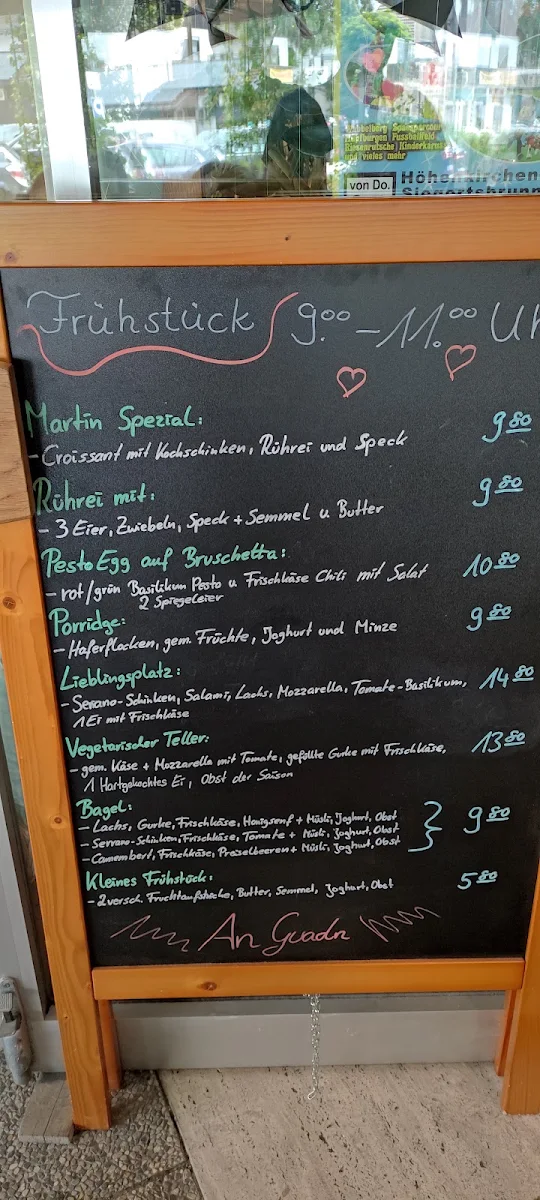 Hubbelberg | Spassparcour
Hüpfburgen | Fussballfeld
Riesenrutsche | Kinderkarus
und vieles mehr
von Do.
Höhenkirchen
Siegertsbrunn
Frühstück 9.00 - 11.00 Uh
Martin Spezial: 9 80
- Croissant mit Kochschinken, Rührei und Speck
Rührei mit: 9 80
- 3 Eier, Zwiebeln, Speck + Semmel u Butter
Pesto Egg auf Bruschetta: 10 80
- rot/grün Basilikum Pesto u Frischkäse Chili mit Salat
2 Spiegeleier
Porridge: 9 80
- Haferflocken, gem. Früchte, Joghurt und Minze
Lieblingsplatz: 14 80
- Serrano-Schinken, Salami, Lachs, Mozzarella, Tomate-Basilikum,
1 Ei mit Frischkäse
Vegetarischer Teller: 13 80
- gem. Käse + Mozzarella mit Tomate, gefüllte Gurke mit Frischkäse,
1 Hartgekochtes Ei, Obst der Saison
Bagel: 9 80
- Lachs, Gurke, Frischkäse, Honigsenf + Müsli, Joghurt, Obst
- Serrano-Schinken, Frischkäse, Tomate + Müsli, Joghurt, Obst
- Camembert, Frischkäse, Preiselbeeren + Müsli, Joghurt, Obst
Kleines Frühstück: 5 80
- 2 versch. Fruchtaufstriche, Butter, Semmel, Joghurt, Obst
An Guadn